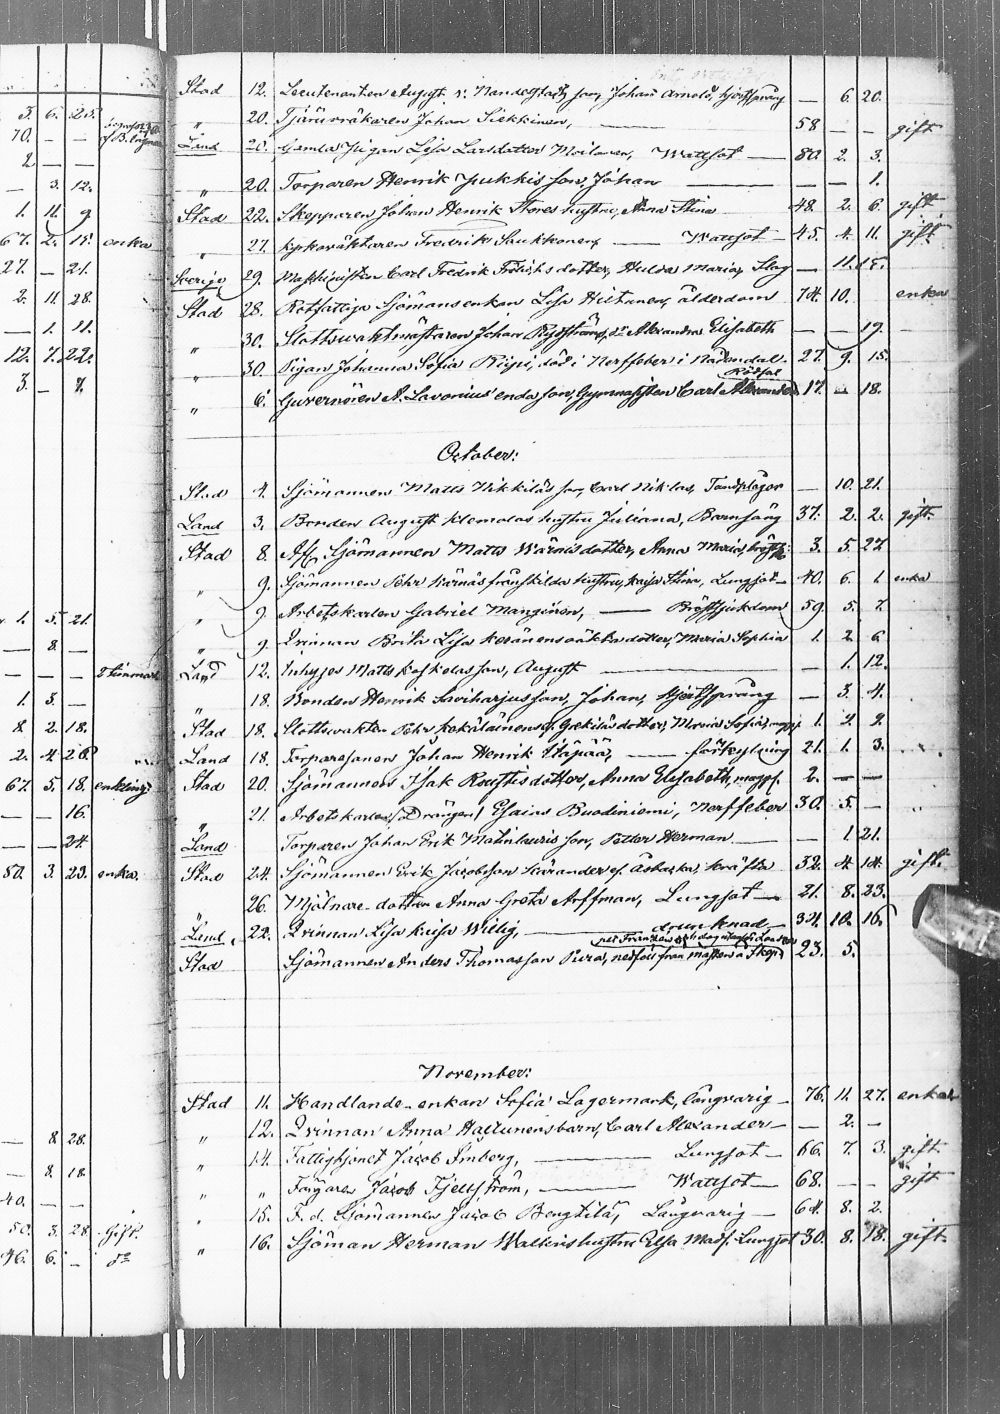 3. 6. 25.
70. — —
2 — —
— 3. 12.
1. 11. 9
67. 2. 15. enka
27. — 21.
2. 11. 28.
— 1. 11.
12. 7. 22.
3. — 7.
1. 5. 21.
— 8. —
— — — 2 timmar
1. 3. —
8. 2. 18.
2. 4. 28.
67. 5. 18. enkling
— — 16.
— — 24.
80. 3. 23. enka.
— 8. 28.
— 8. 18.
40. — —
50. 3. 28. Gift.
46. 6. — do
Stad 12. Leeutenanten August v. Nandelstadts son, Johan Arnold, hjertsprång — 6. 20.
„ 20. Tjäruvräkaren Johan Siekkinen, — 58 — — gift
Land 20. Gamla Pigan Lisa Larsdotter Moilanen, Wattsot — 80. 2. 3.
„ 20. Torparen Henrik Jukkis son, Johan — — — 1.
Stad 22. Skepparen Johan Henrik Stores hustru, Anna Stina 48. 2. 6. gift
„ 27. Kyrkoväktaren Fredrik Saukkonen, — Wattsot — 45. 4. 11. gift
Sverige 29. Maschinisten Carl Fredrik dotter, Hulda Maria, Slag — 11. 15.
Stad 28. Rotfattiga Sjömansenkan Lisa Hiltunen, ålderdom 74. 10. enka
„ 30. Slottswaktmästaren Johan dr Alexandra Elisabeth — — 19.
„ 30. Pigan Johanna Sofia Riipi, död i Nerffeber i Nådendal. 27. 9. 15.
Rödsot
„ 6. Guvernören A. Lavonius' enda son, Gymnasisten Carl Alexander 17. — 18.
October:
Stad 4. Sjömannen Matts Nikkiläs son, Carl Niklas, Tandplågor — 10. 21.
Land 3. Bonden August Klemolas hustru Juliana, Barnsäng 37. 2. 2. gift.
Stad 8. Afl. Sjömannen Matts Wärnis dotter, Anna Maria, 3. 5. 27.
„ 9. Sjömannen Pehr Kärnäs frånskilda hustru, Kajsa Stina, Lungsot — 40. 6. 1. enka
„ 9. Arbetskarlen Gabriel Manginen, — Bröstsjukdom 59. 5. 7.
„ 9. Qvinnan Brita Lisa Keränens oäkta dotter, Maria Sophia 1. 2. 6.
Land 12. Inhyses Matts Koskelas son, August — — 1. 12.
„ 18. Bonden Henrik Saviharjus son, Johan, hjertsprång — 3. 4.
Stad 18. Slottswakten Pehr Kekäläinens dotter, Maria Sofia, magpl. 1. 2. 2.
Land 18. Torparesonen Johan Henrik Itäpää, — förkylning 21. 1. 3.
Stad 20. Sjömannens Isak Roustis dotter, Anna Elisabeth, magpl. 2. — —
„ 21. Arbetskarlen (Drängen) Esaias Buodiniemi, Nerffeber 30. 5. —
Land Torparen Johan Erik Matinlauris son, Petter Herman — — 1. 21.
Stad 24. Sjömannen Erik Jacobsson Kärander kräfta 32. 4. 14. gift.
„ 26. Mjölnare-dotter Anna Greta Arffman, Lungsot — 21. 8. 23.
Land 22. Qvinnan Lisa Kajsa Willig, — drunknad 34. 10. 16.
Stad Sjömannen Anders Thomasson Pura, nedföll från masten å Skepp 23. 5.
November:
Stad 11. Handlande-enkan Sofia Lagermark, långvarig — 76. 11. 27. enka
„ 12. Qvinnan Anna Haltunens barn, Carl Alexander — — 2. —
„ 14. Fattighjonet Jacob Imberg, — Lungsot — 66. 7. 3. gift
„ „ Färgaren Jacob Fjellström, — Wattsot — 68. — — gift
„ 15. F. d. Sjömannen Jacob Bengtilä, Långvarig — 64. 8. 2.
„ 16. Sjöman Herman Walkins hustru Elsa Mads. Lungsot 30. 8. 18. gift.